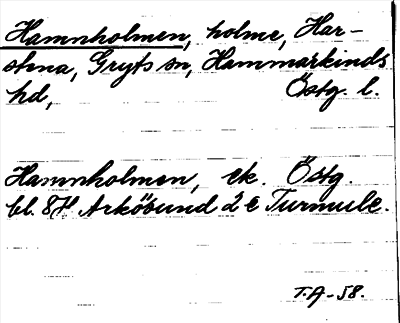 Hamnholmen, holme, Har-
stena, Gryts sn, Hammarkinds
hd, Östg. l.
Hamnholmen, ek. Östg.
bl. 8H Arkösund d e Turmule.
T.A-58.